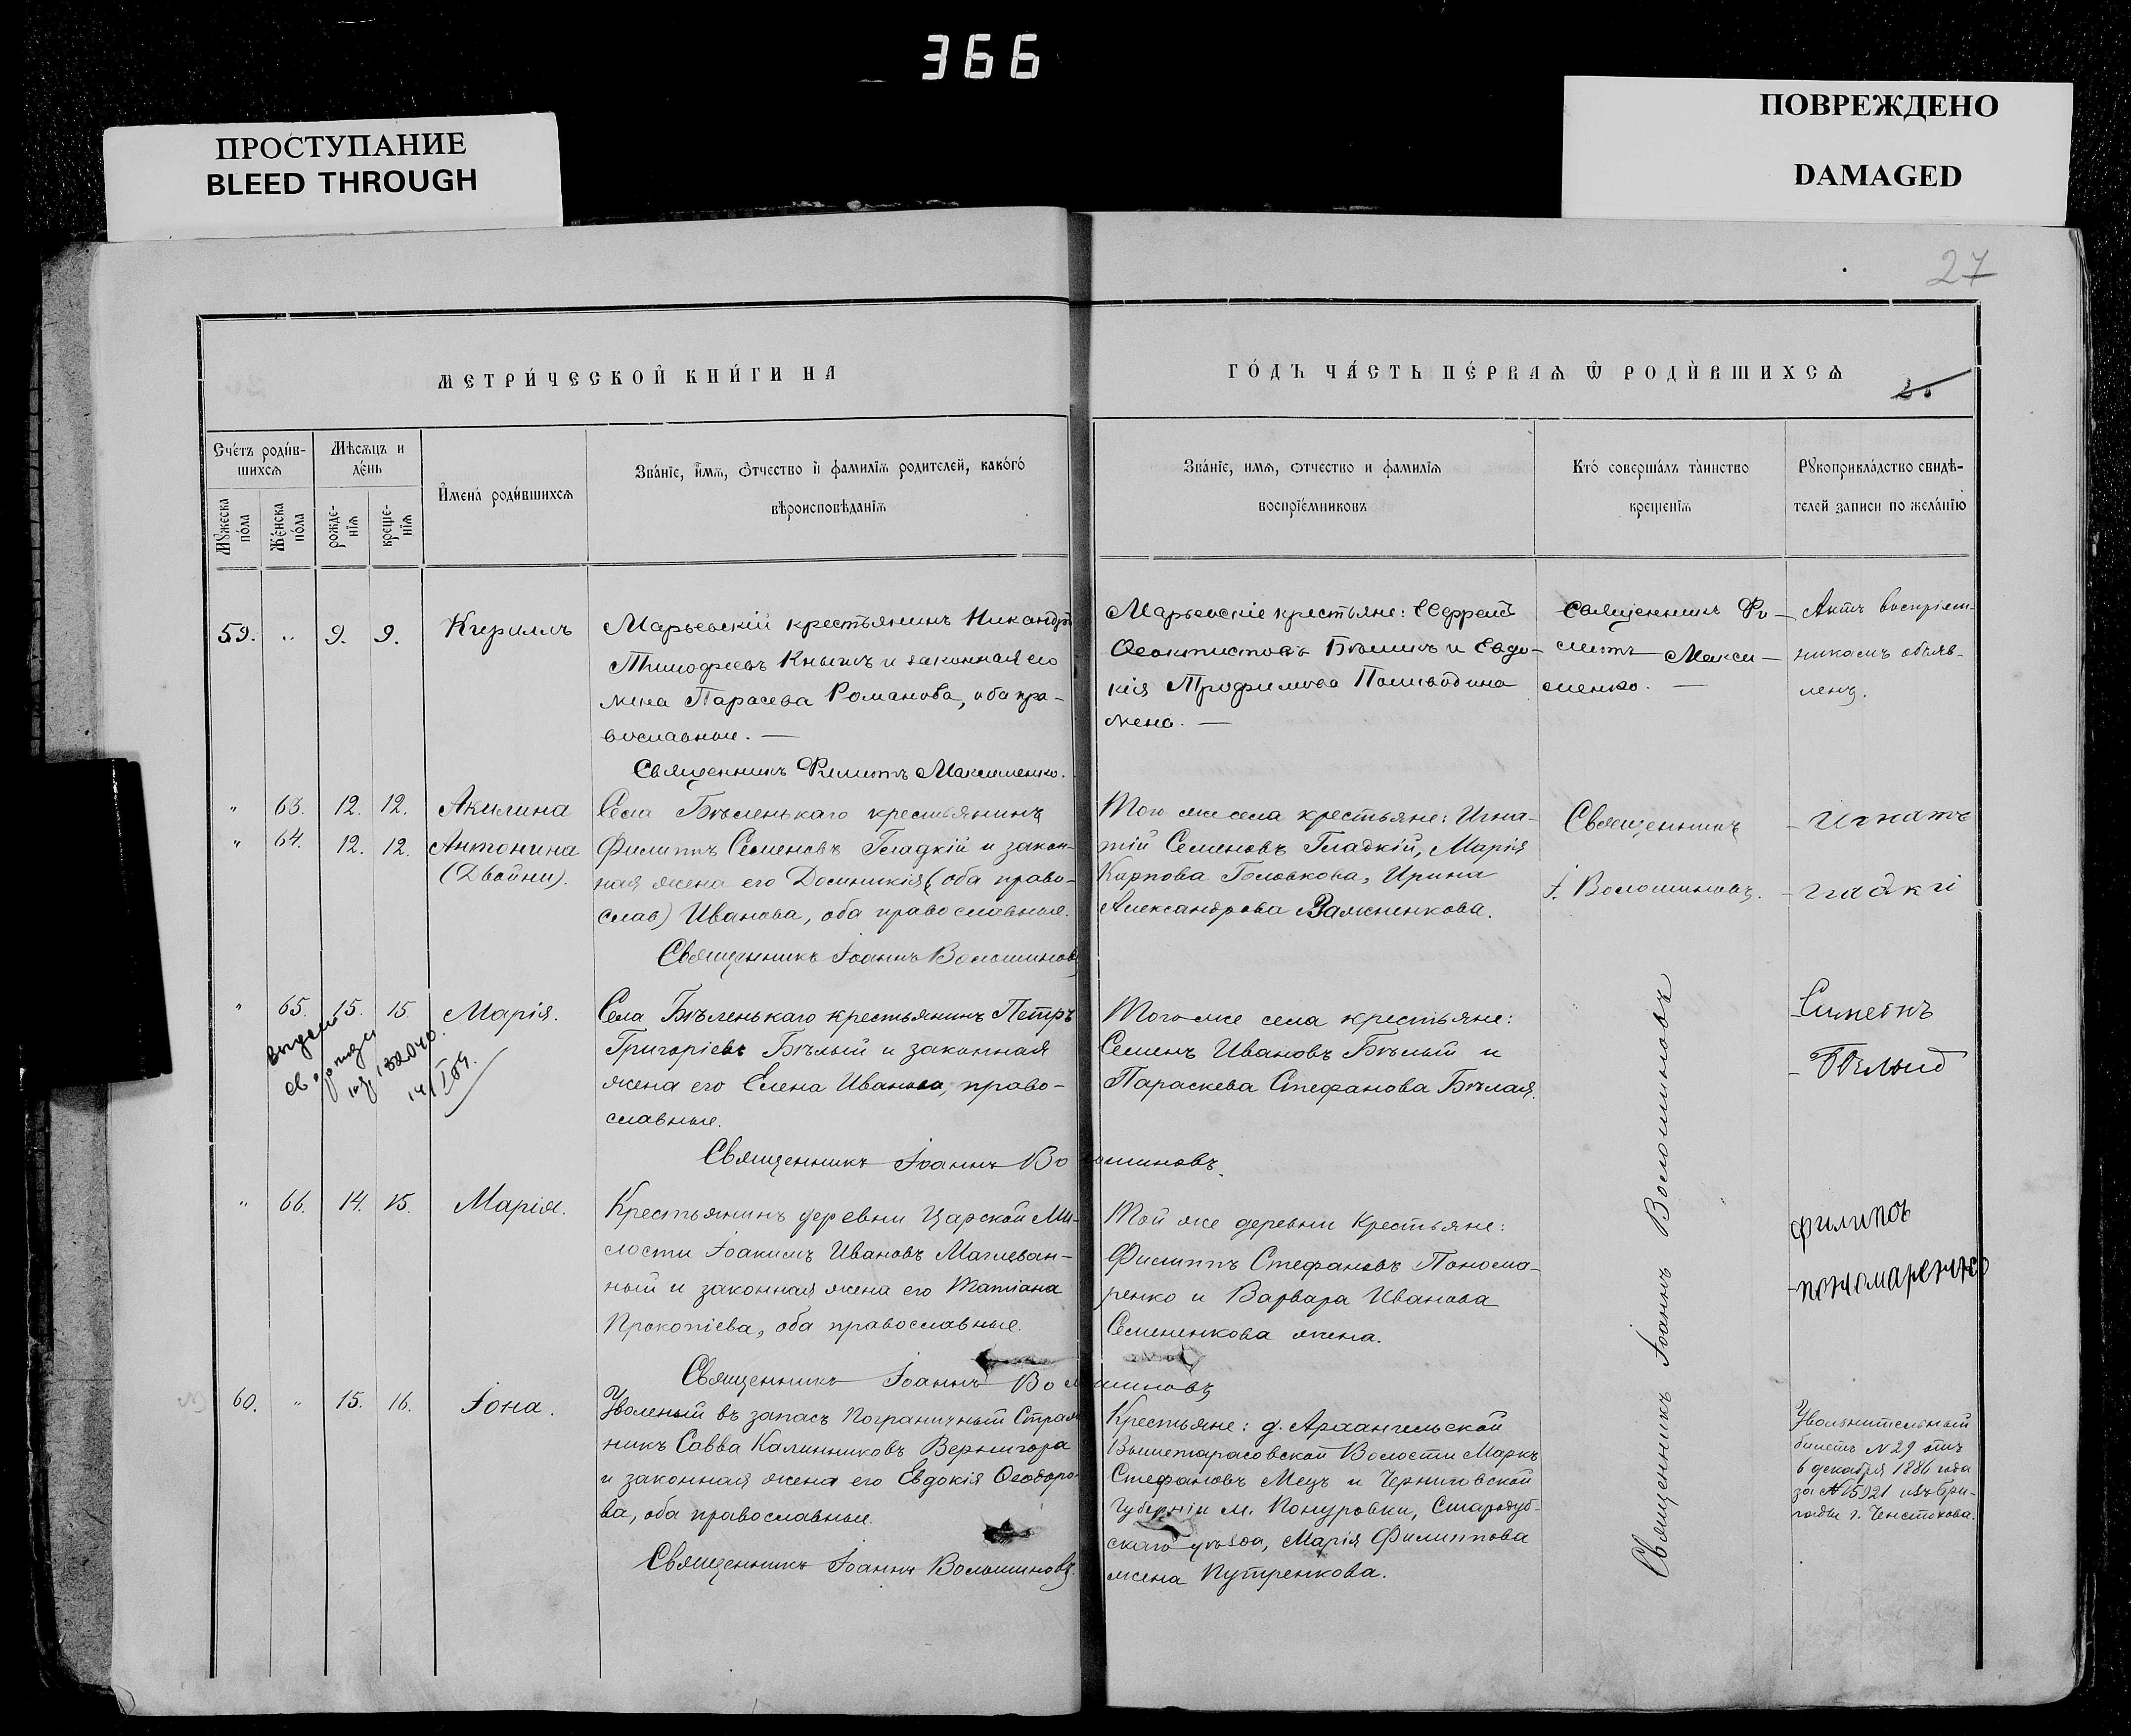 366
ПРОСТУПАНИЕ
BLEED THROUGH
ПОВРЕЖДЕНО
DAMAGED
27
МЕТРИ́ЧЕСКОЙ КНИ́ГИ НА
ГО́ДЪ ЧА́СТЬ ПЕ́РВАѦ Ѿ РОДИ́ВШИХСѦ
Сче́тъ роди́в-
шихсѧ
Мѣсѧцъ и
де́нь
Мꙋ́жеска
по́ла
Же́нска
по́ла
рожде-
нїѧ
креще-
нїѧ
И҆мена́ роди́вшихсѧ
Зва́нїе, и҆́мѧ, ѻ҆́тчество и҆ фамилїѧ родителей, како́гѡ
вѣроисповѣданїѧ
Зва́нїе, имѧ, ѻтчество и фамилїѧ
воспрїе́мниковъ
Кто̀ соверша́лъ та́инство
крещенїѧ
Рꙋкоприкла́дство свидѣ-
телей записи по жела́нїю
59. " 9. 9. Кириллъ
Марьевскій крестьянинъ Никандръ
Тимофеевъ Кнышъ и законная его
жена Парасева Романова, оба пра-
вославные. —
Священникъ Филиппъ Максименко.
Марьевскіе крестьяне: Ефремъ
Ѳеоктистовъ и Евдо-
кія Трофимова
жена. —
Священникъ Фи-
липпъ Макси-
менко. —
Актъ воспріем-
никамъ объяв-
ленъ.
" 63. 12. 12. Акилина
" 64. 12. 12. Антонина
(Двойни).
Села Бѣленькаго крестьянинъ
Филиппъ Семеновъ Гладкій и закон-
ная жена его Домникія (оба право-
слав) Иванова, оба православные.
Священникъ Іоаннъ Волошиновъ
Того же села крестьяне: Игна-
тій Семеновъ Гладкій, Марія
Карпова Головкова, Ирина
Александрова
Священникъ
І. Волошиновъ.
- Игнатъ
- гладкі
" 65. 15. 15. Марія.
выдано
св.
из 132040
14/I 09.
Села Бѣленькаго крестьянинъ Петръ
Григоріевъ Бѣлый и законная
жена его Елена Иванова, право-
славные.
Священникъ Іоаннъ Волошиновъ.
Того же села крестьяне:
Семенъ Ивановъ Бѣлый и
Параскева Стефанова Бѣлая.
- Бѣлыб
" 66. 14. 15. Марія.
Крестьянинъ деревни Царской Ми-
лости Іоакимъ Ивановъ Маглеван-
ный и законная жена его Татіана
Прокопіева, оба православные.
Священникъ Іоаннъ Волошиновъ
Той же деревни Крестьяне:
Филиппъ Стефановъ Понома-
ренко и Варвара Иванова
Семененкова жена.
филипъ
-пономаренко
Священникъ Іоаннъ Волошиновъ
60. " 15. 16. Іона.
Уволеный въ запасъ Пограничный Страж
никъ Савва Калинниковъ Вернигора
и законная жена его Евдокія Ѳеодоро-
ва, оба православные.
Священникъ Іоаннъ Волошиновъ.
Крестьяне: д. Архангельской
Вышетарасовской Волости Маркъ
Стефановъ Мецъ и Черниговской
Губерніи м. Понуровки, Стародуб-
скаго уѣзда, Марія Филиппова
жена Путренкова.
Увольнительный
билетъ №29 отъ
6 декабря 1886 года
за №15921 изъ Бри-
гады г. Ченстохова.